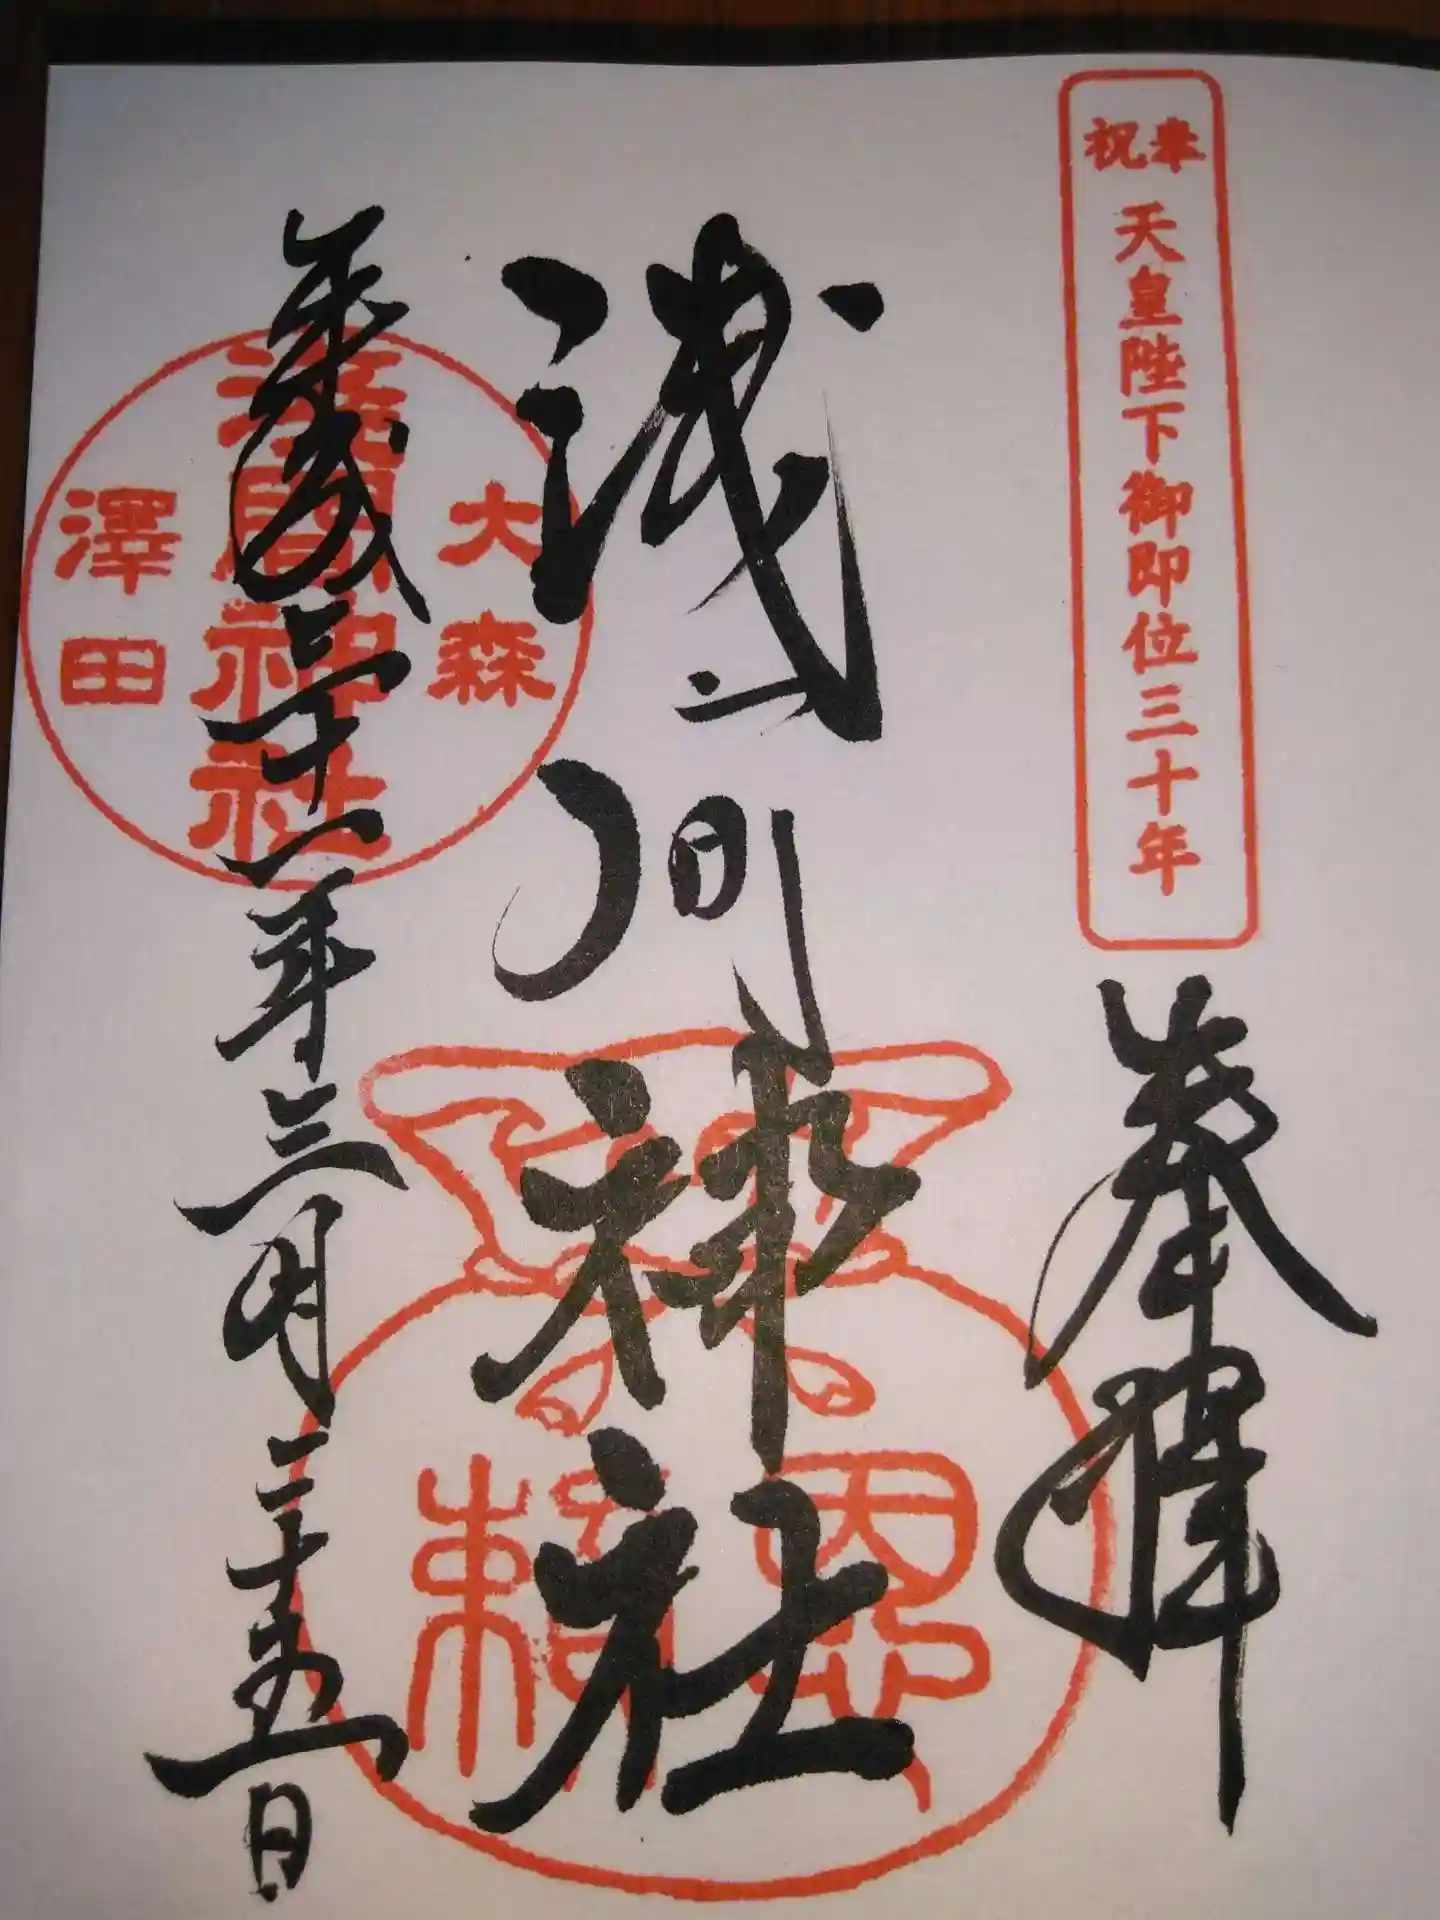 奉祝
天皇陛下御即位三十年
奉拝
浅間神社
大森
浅間神社
澤田
平成三十一年三月二十五日